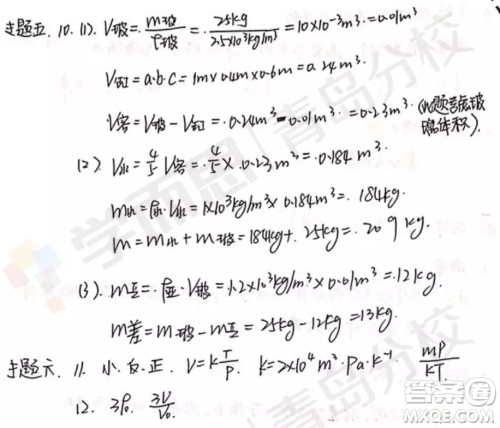 专题五. 10. (1). V玻 = m玻/ρ玻 = 25kg/2.5×10³kg/m³ = 10×10⁻³m³. = 0.01m³
V缸 = a·b·c = 1m×0.4m×0.6m = 0.24m³.
V容 = V缸 - V玻 = 0.24m³ - 0.01m³ = 0.23m³.
(2). V水 = 4/5 V容 = 4/5 × 0.23m³ = 0.184m³.
m水 = ρ水·V水 = 1×10³kg/m³ × 0.184m³ = 184kg.
m = m水 + m玻 = 184kg + 25kg = 209kg.
(3). m亚 = ρ亚·V玻 = 1.2×10³kg/m³ × 0.01m³ = 12kg.
m差 = m玻 - m亚 = 25kg - 12kg = 13kg.
专题六. 11. 小. 反. 正. V=k T/P. k=2×10⁴ m³·Pa·k⁻¹. mP/kT.
12. 3ρ₀. 3V/V₀.
学而思 青岛分校
答案圈
MXQE.COM